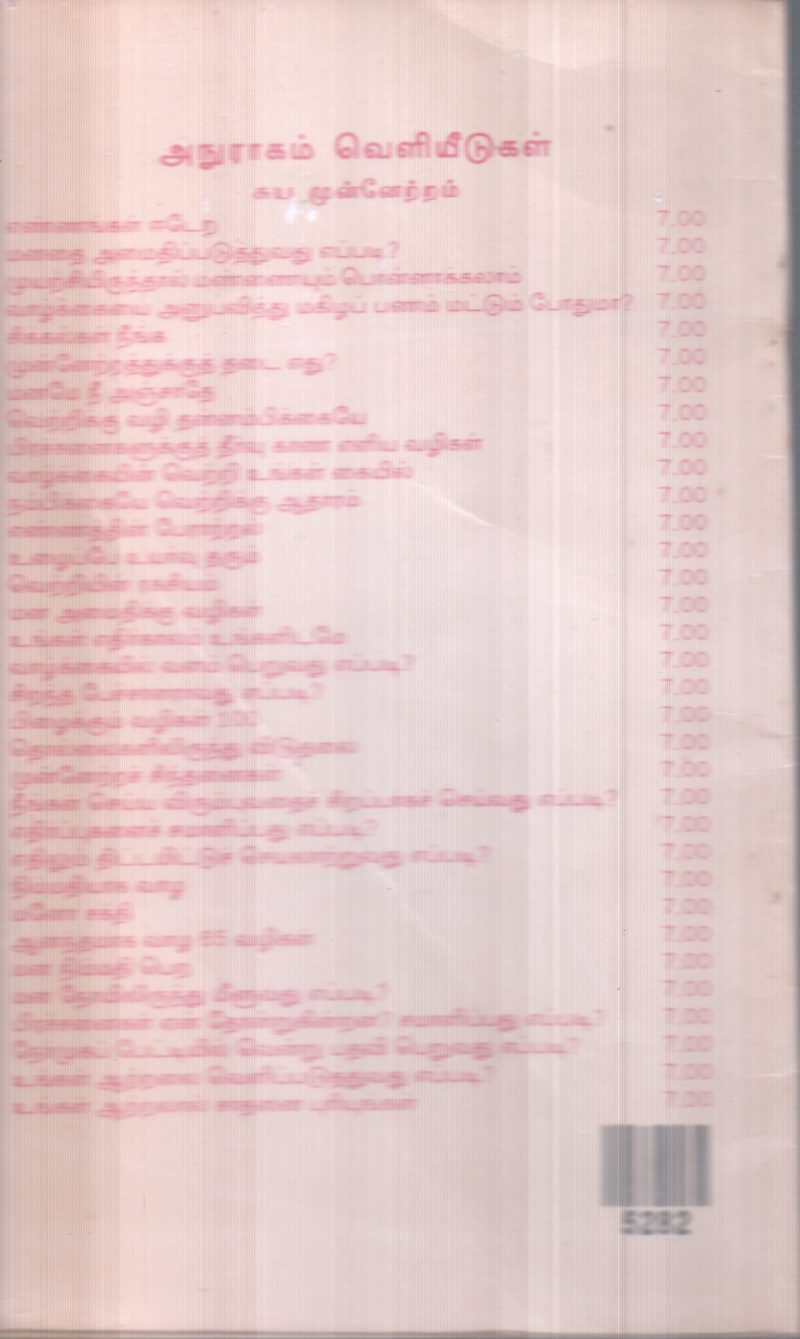 அநுராகம் வெளியீடுகள்
சுய முன்னேற்றம்
எண்ணங்கள் ஈடேற 7.00
மனதை அமைதிப்படுத்துவது எப்படி? 7.00
முயற்சியிருந்தால் மண்ணையும் பொன்னாக்கலாம் 7.00
வாழ்க்கையை அனுபவித்து மகிழப் பணம் மட்டும் போதுமா? 7.00
சிக்கல்கள் நீங்க 7.00
முன்னேற்றத்துக்குத் தடை எது? 7.00
மனமே நீ அஞ்சாதே 7.00
வெற்றிக்கு வழி தன்னம்பிக்கையே 7.00
பிரச்சனைகளுக்குத் தீர்வு காண எளிய வழிகள் 7.00
வாழ்க்கையின் வெற்றி உங்கள் கையில் 7.00
நம்பிக்கையே வெற்றிக்கு ஆதாரம் 7.00
எண்ணத்தின் போராற்றல் 7.00
உழைப்பே உயர்வு தரும் 7.00
வெற்றியின் ரகசியம் 7.00
மன அமைதிக்கு வழிகள் 7.00
உங்கள் எதிர்காலம் உங்களிடமே 7.00
வாழ்க்கையில் வளம் பெறுவது எப்படி? 7.00
சிறந்த பேச்சாளராவது எப்படி? 7.00
பிழைக்கும் வழிகள் 100 7.00
தொல்லைகளிலிருந்து விடுதலை 7.00
முன்னேற்றச் சிந்தனைகள் 7.00
நீங்கள் செய்ய விரும்புவதைச் சிறப்பாகச் செய்வது எப்படி? 7.00
எதிர்ப்புகளைச் சமாளிப்பது எப்படி? 7.00
எதிலும் திட்டமிட்டுச் செயலாற்றுவது எப்படி? 7.00
நிம்மதியாக வாழ 7.00
மனோ சக்தி 7.00
ஆனந்தமாக வாழ 65 வழிகள் 7.00
மன நிம்மதி பெற 7.00
மன நோயிலிருந்து மீளுவது எப்படி? 7.00
பிரச்சனைகள் ஏன் தோன்றுகின்றன? சமாளிப்பது எப்படி? 7.00
நேர்முகப் பேட்டியில் வென்று பதவி பெறுவது எப்படி? 7.00
உங்கள் ஆற்றலை வெளிப்படுத்துவது எப்படி? 7.00
உங்கள் ஆற்றலால் சாதனை புரியுங்கள் 7.00
5282